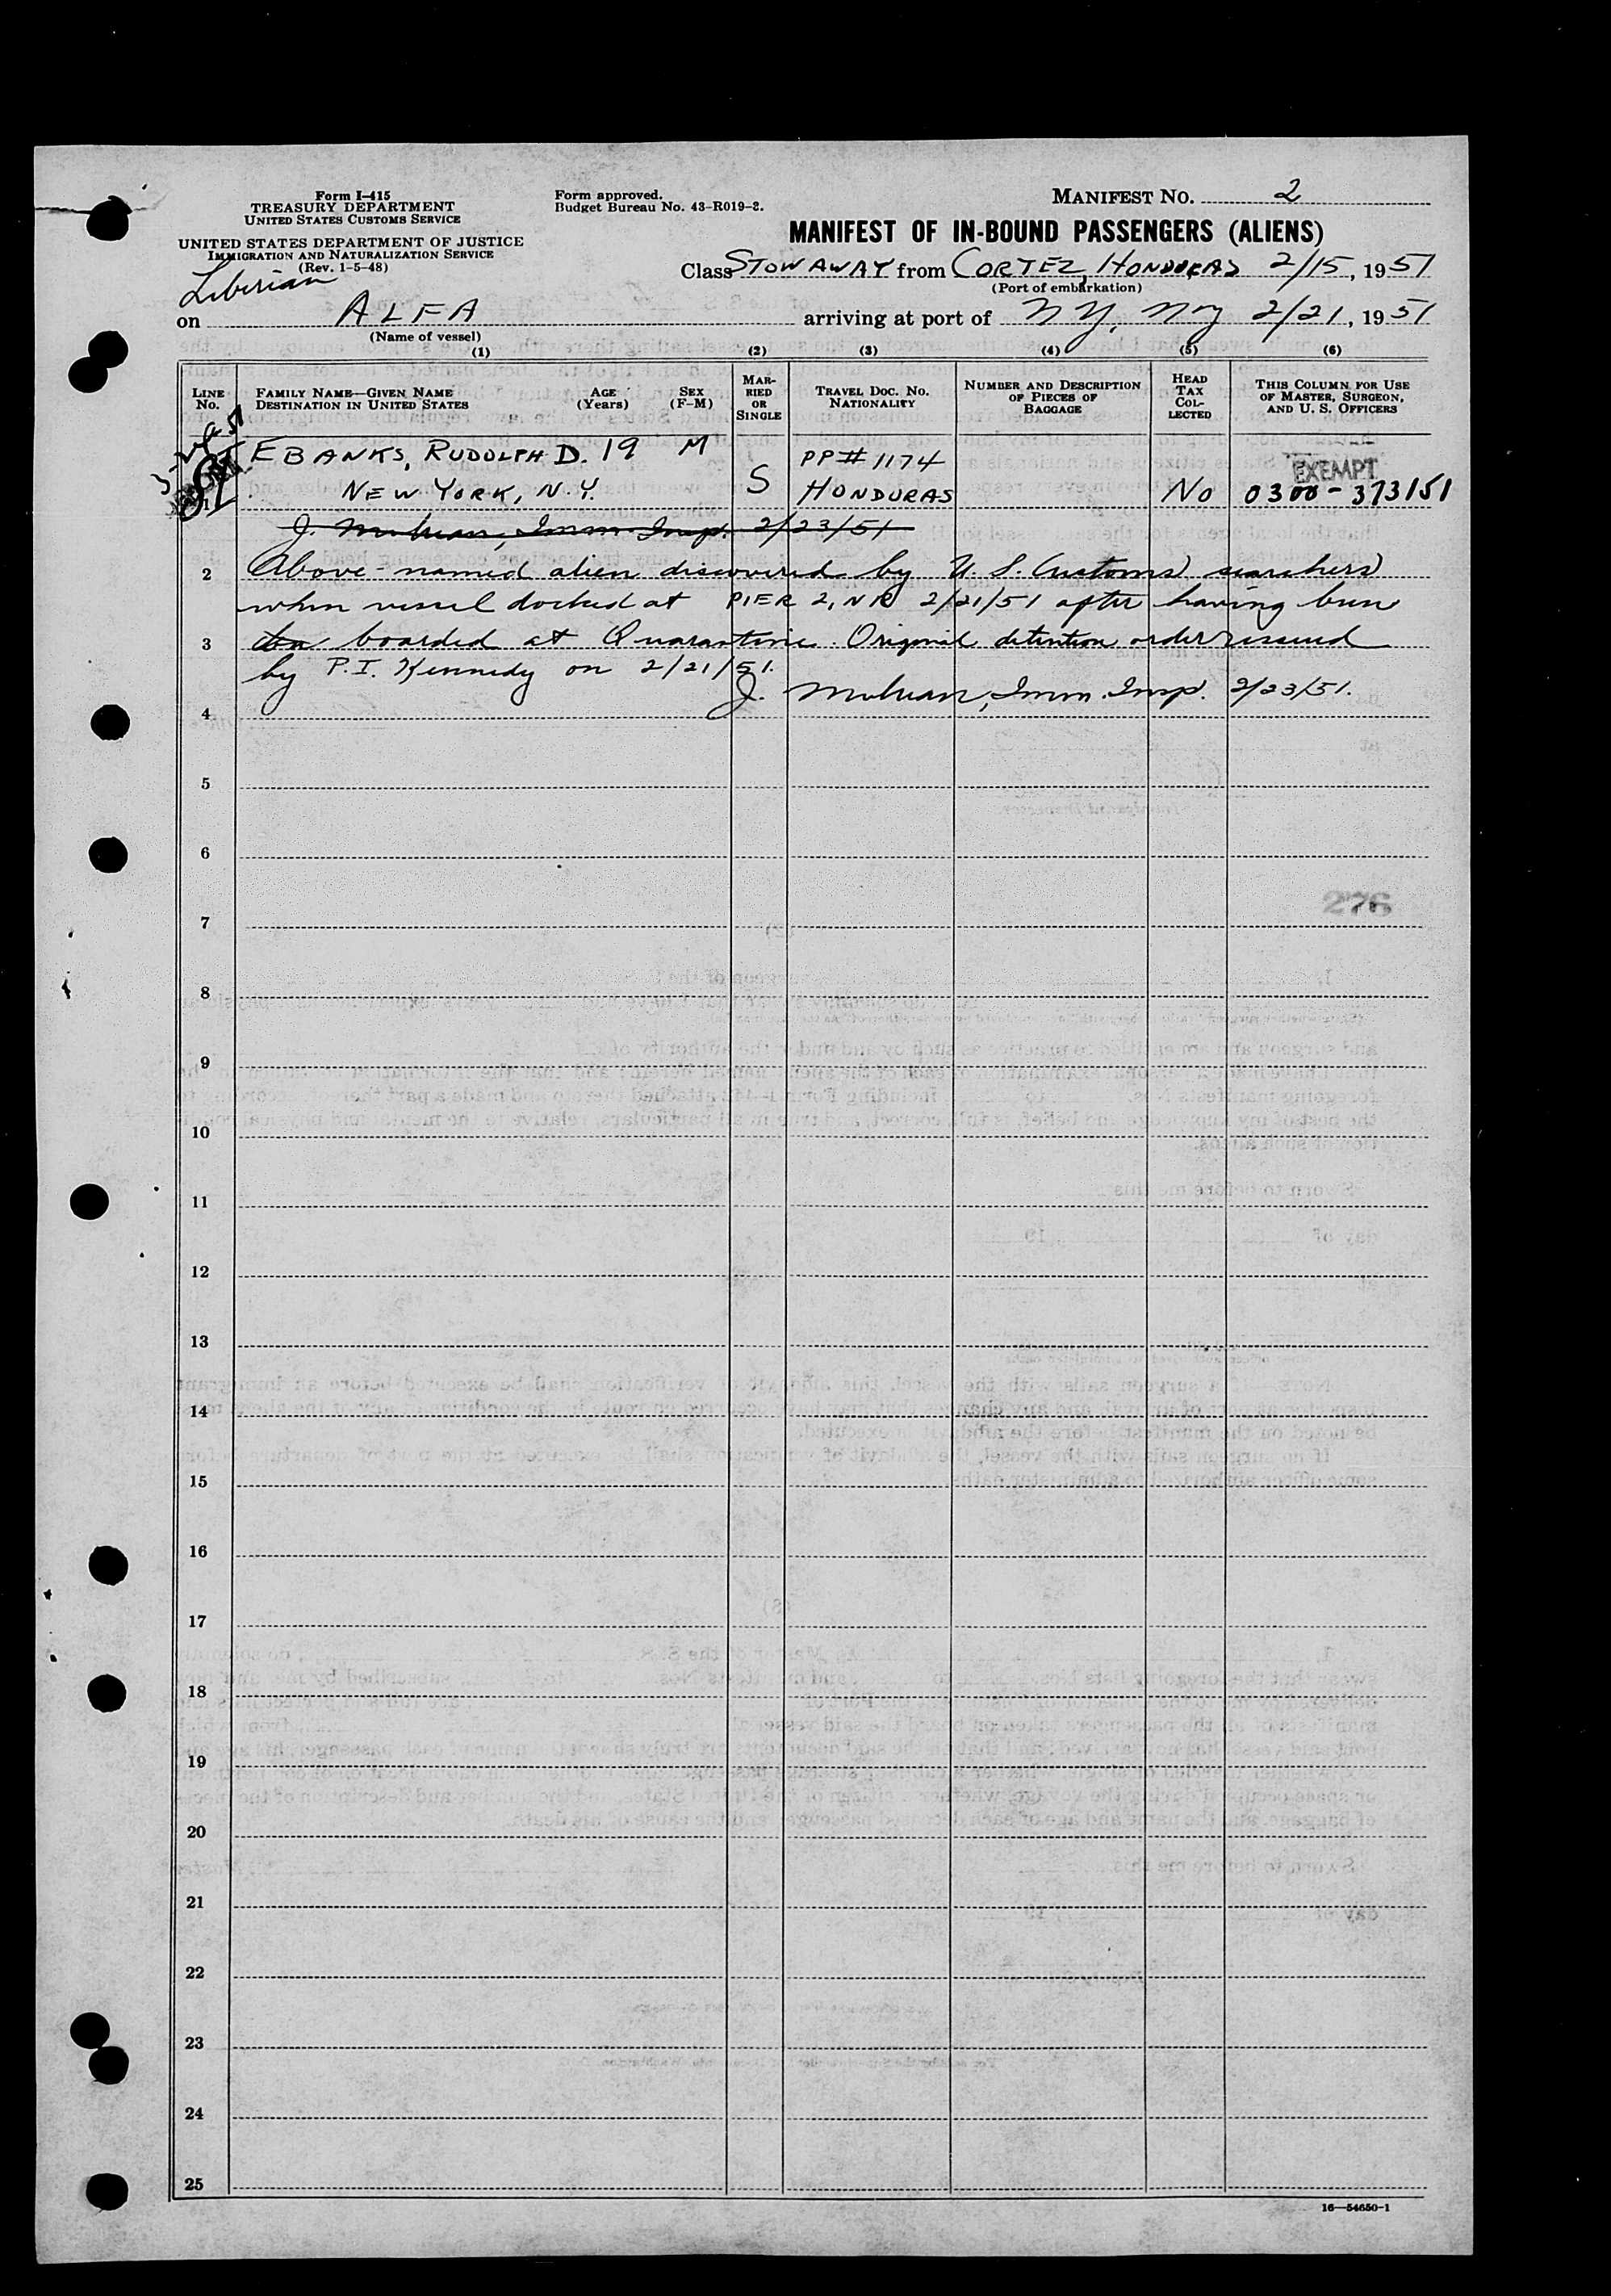 Form I-415
TREASURY DEPARTMENT
UNITED STATES CUSTOMS SERVICE
UNITED STATES DEPARTMENT OF JUSTICE
IMMIGRATION AND NATURALIZATION SERVICE
(Rev. 1-5-48)
Form approved.
Budget Bureau No. 43-R019-2.
MANIFEST NO. 2
MANIFEST OF IN-BOUND PASSENGERS (ALIENS)
Class STOWAWAY from CORTEZ, HONDURAS 2/15, 1951
(Port of embarkation)
Liberian
on ALFA arriving at port of NY, NY 2/21, 1951
(Name of vessel)
(1) (2) (3) (4) (5) (6)
LINE No.
FAMILY NAME—GIVEN NAME
DESTINATION IN UNITED STATES
AGE (Years)
SEX (F-M)
MARRIED OR SINGLE
TRAVEL DOC. NO.
NATIONALITY
NUMBER AND DESCRIPTION OF PIECES OF BAGGAGE
HEAD TAX COLLECTED
THIS COLUMN FOR USE OF MASTER, SURGEON, AND U. S. OFFICERS
EBANKS, RUDOLPH D. 19 M PP# 1174 EXEMPT
1 NEW YORK, N.Y. S HONDURAS No 0300-373151
Imm. Insp. 2/23/51
2 Above-named alien discovered by U. S. Customs searchers
when vessel docked at PIER 2, NR 2/21/51 after having been
3 boarded at Quarantine. Original detention order issued
by P.I. Kennedy on 2/21/51.
J. Imm. Insp. 2/23/51.
4
5
6
276
7
8
9
10
11
12
13
14
15
16
17
18
19
20
21
22
23
24
25
16—54650-1